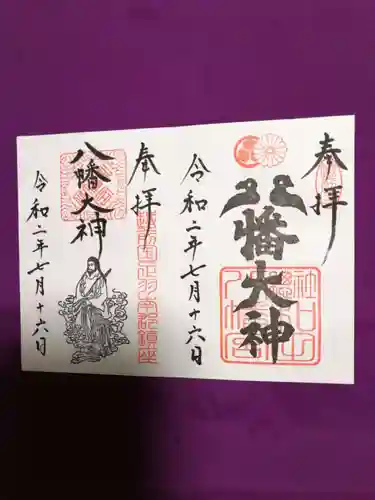 奉拝
八幡大神
令和二年七月十六日
奉拝
八幡大神
令和二年七月十六日